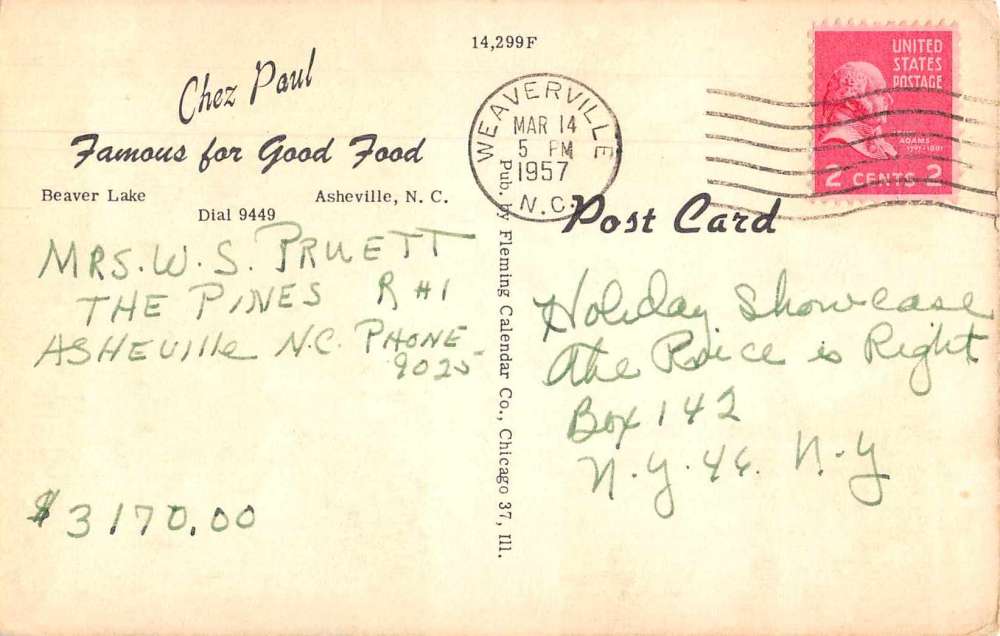 14,299F
Chez Paul
Famous for Good Food
Beaver Lake Asheville, N. C.
Dial 9449
MRS. W. S. PRUETT
THE PINES R #1
ASHEVIlle N.C. PHONE
9025
$3170.00
Pub. by Fleming Calendar Co., Chicago 37, Ill.
WEAVERVILLE
MAR 14
5 PM
1957
N.C.
UNITED
STATES
POSTAGE
ADAMS
2 CENTS 2
Post Card
Holiday Showcase
The Price is Right
Box 142
N.Y. 46. N.Y